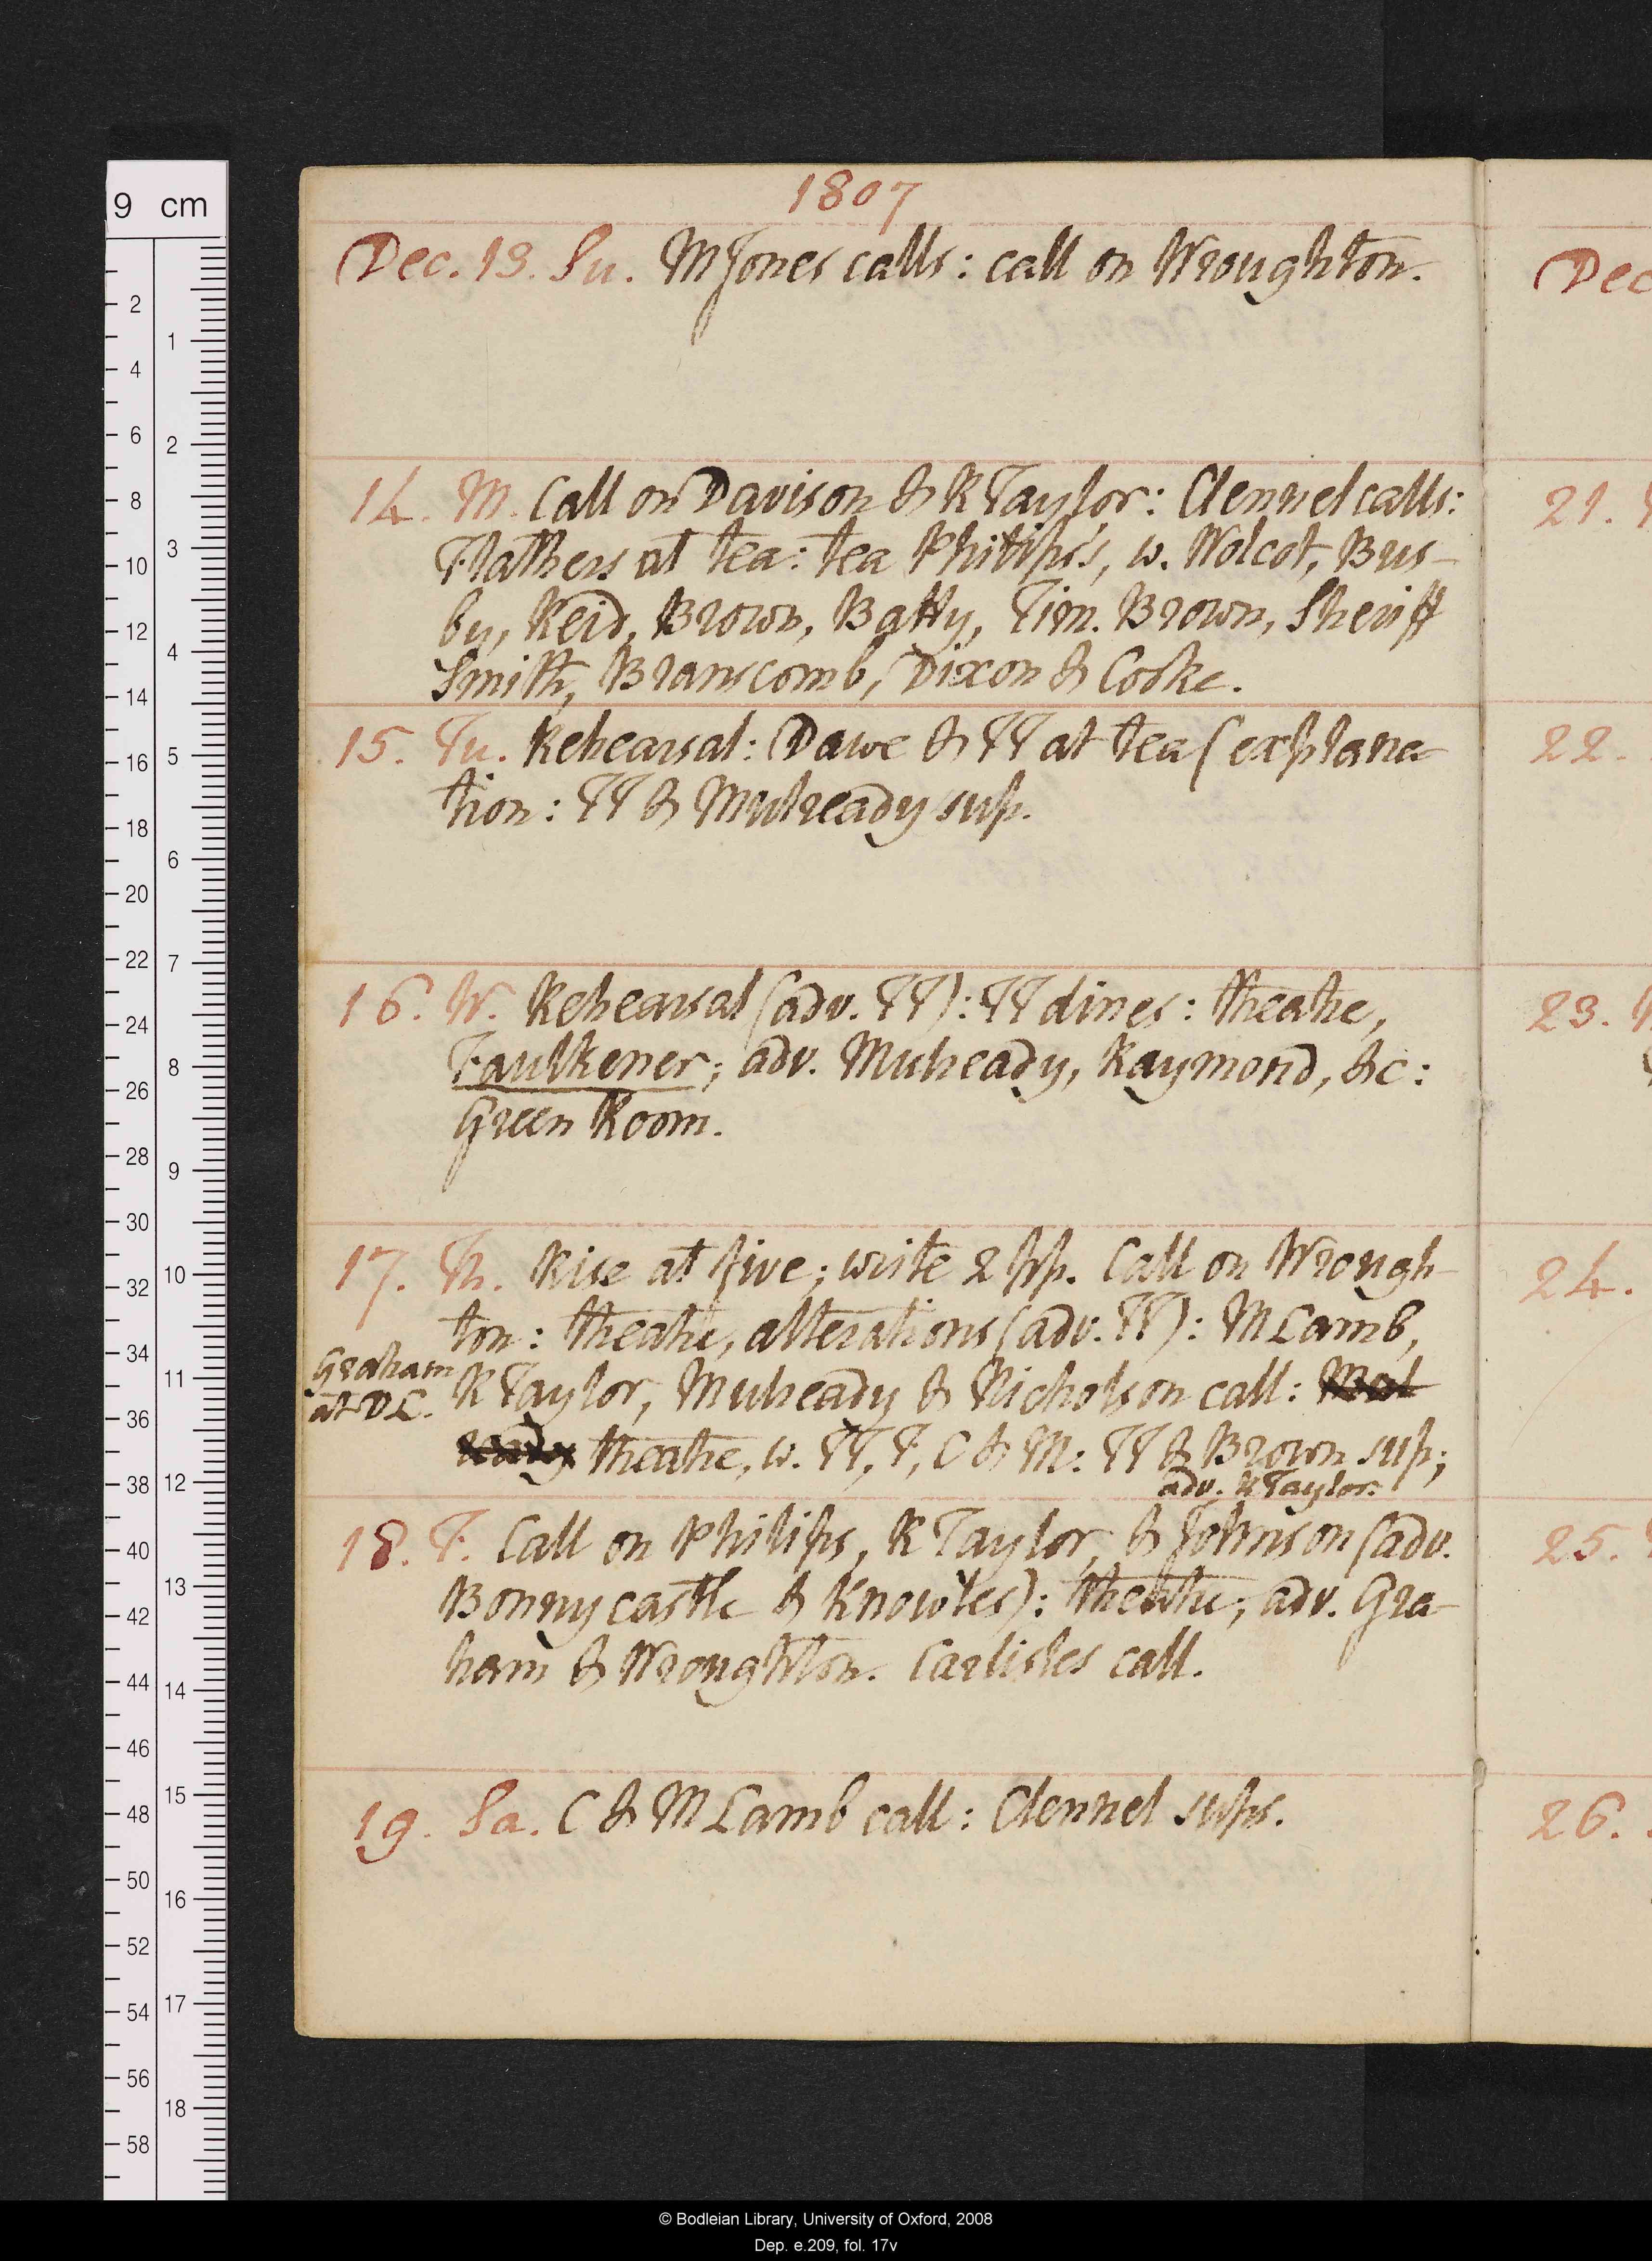 1807
Dec. 13. Su. M Jones calls: call on Wroughton.
14. M. Call on Davison & R Taylor: Clennel calls:
Flathers at tea: tea Philips's, w. Wolcot, Bus-
by, Reid, Brown, Batty, Tim. Brown, Sheriff
Smith, Branscomb, Dixon & Cooke.
15. Tu. Rehearsal: Dawe & TT at tea (explana-
tion: TT & Mulready sup.
16. W. Rehearsal (adv. TT): TT dines: theatre,
Faulkener; adv. Mulready, Raymond, &c:
Green Room.
17. Th. Rise at five; write 2 pp. Call on Wrough-
ton: theatre, alterations (adv. TT): M Lamb,
Graham
at DL.
R Taylor, Mulready & Nicholson call: Mul
ready theatre, w. TT, F, C & M: TT & Brown sup;
adv. R Taylor.
18. F. Call on Philips, R Taylor, & Johnson (adv.
Bonnycastle & Knowles): theatre; adv. Gra-
ham & Wroughton. Carlisles call.
19. Sa. C & M Lamb call: Clennel sups.
Dec
21.
22.
23.
24.
25.
26.
9 cm
2
4
6
8
10
12
14
16
18
20
22
24
26
28
30
32
34
36
38
40
42
44
46
48
50
52
54
56
58
1
2
3
4
5
6
7
8
9
10
11
12
13
14
15
16
17
18
© Bodleian Library, University of Oxford, 2008
Dep. e.209, fol. 17v